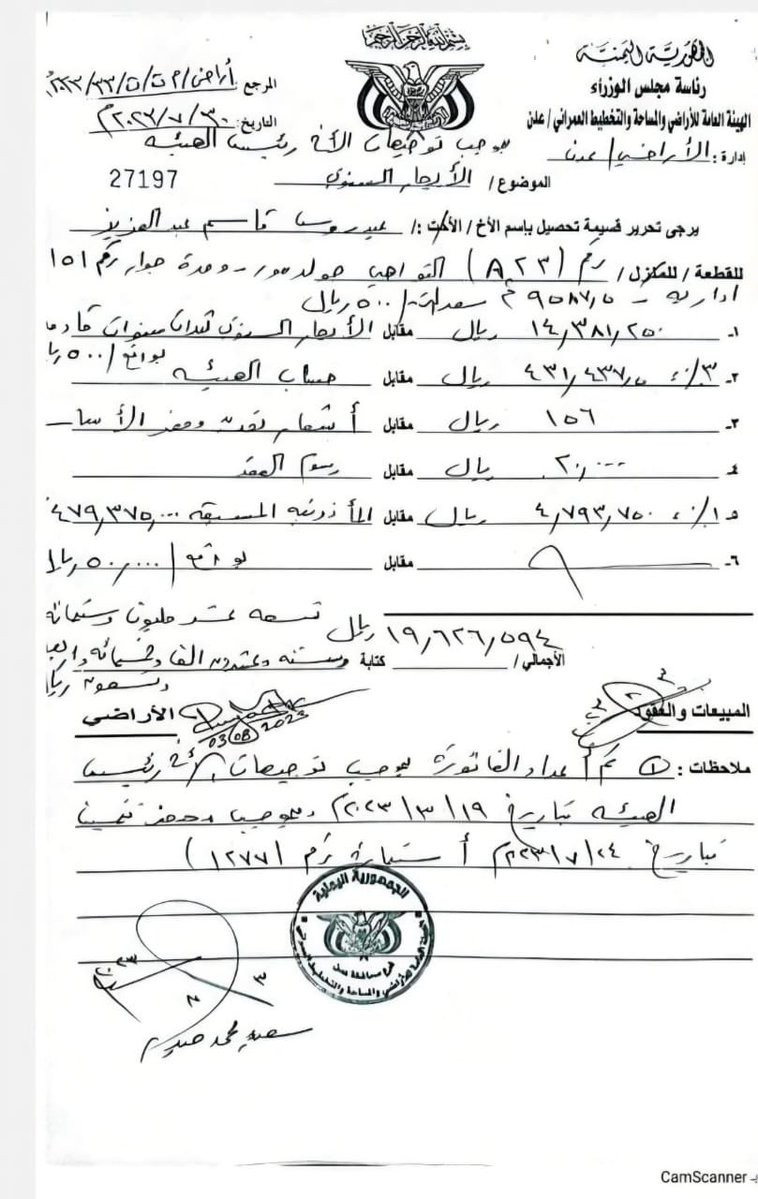 بسم الله الرحمن الرحيم
الجمهورية اليمنية
رئاسة مجلس الوزراء
الهيئة العامة للأراضي والمساحة والتخطيط العمراني / عدن
إدارة : الأراضي / عدن
المرجع أراضي / م ت / ت / ٣٣ / ٢٠٢٣
التاريخ : ٣٠ / ٧ / ٢٠٢٣م
بموجب توجيهات الأخ رئيس الهيئة
الموضوع / الأيجار السنوي
27197
يرجى تحرير قسيمة تحصيل باسم الأخ / الأخت : / عيدروس قاسم عبدالعزيز
للقطعة / للمنزل / رقم ( A ٢٣ ) التواهي جولدمور - وحدة جوار رقم ١٥١
ادارية - ٩٥٨٧٫٥ م٢ / ٥٠٠ ريال
١- ١٤,٣٨١,٢٥٠ ريال مقابل الأيجار السنوي ثلاث سنوات
بواقع / ٥٠٠
٢- ٣٪ ٤٣١,٤٣٧٫٥ ريال مقابل حساب الهيئة
٣- ١٥٦ ريال مقابل
٤- ٢٠,٠٠٠ ريال مقابل رسوم العقد
٥- ١٠٪ ٤,٧٩٣,٧٥٠ ريال مقابل المأذونية المسبقة ٤٧٩,٣٧٥,٠٠٠
٦- مقابل بواقع / ٥٠,٠٠٠ ريال
الأجمالي / ١٩,٦٢٦,٥٩٤ ريال كتابة تسعة عشر مليون وستمائة
وستة وعشرون الفا وخمسمائة واربعة
وتسعون ريال
المبيعات والعقود
الأراضي
03 08 2023
ملاحظات : ١ تم أعداد الفاتورة بموجب توجيهات أ/ رئيس
الهيئة بتاريخ ١٩ / ٣ / ٢٠٢٣م وبموجب محضر تثمين
بتاريخ ٢٤ / ٧ / ٢٠٢٣م أستمارة رقم ( ١٢٧٧ )
الجمهورية اليمنية
الهيئة العامة للأراضي والمساحة والتخطيط العمراني
فرع محافظة عدن
CamScanner